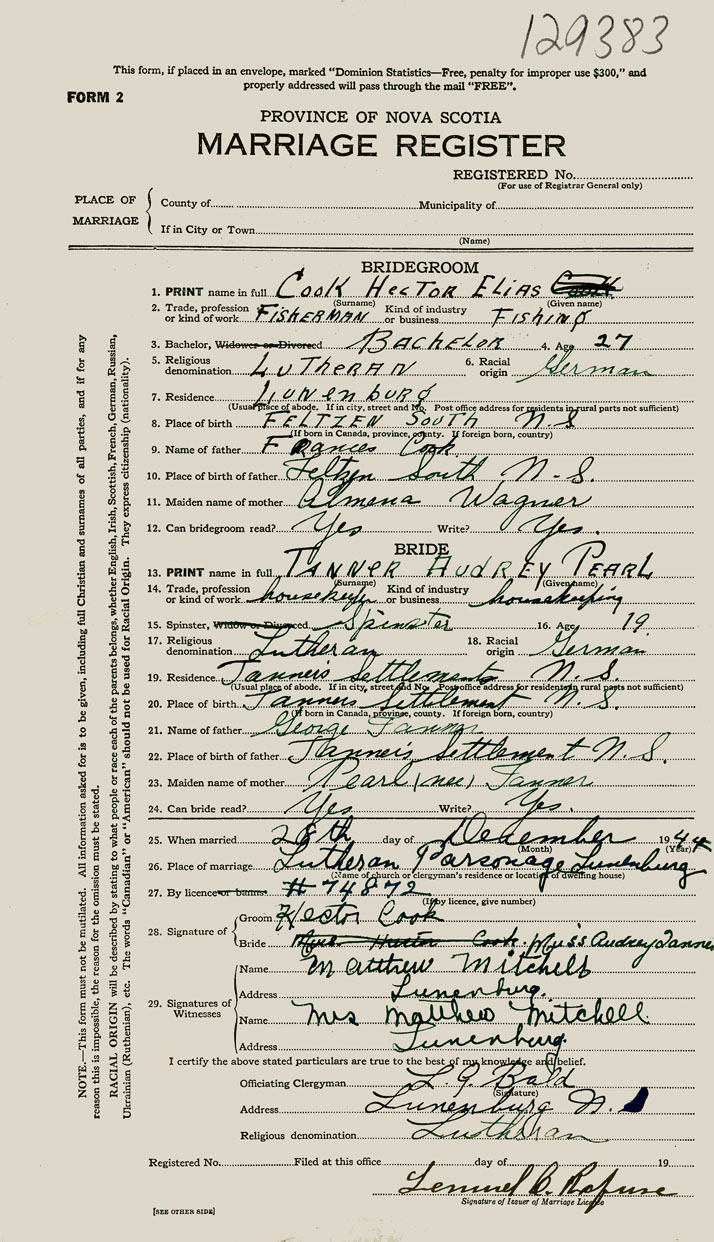 129383
This form, if placed in an envelope, marked “Dominion Statistics—Free, penalty for improper use $300,” and
properly addressed will pass through the mail “FREE”.
FORM 2
PROVINCE OF NOVA SCOTIA
MARRIAGE REGISTER
REGISTERED No.
(For use of Registrar General only)
PLACE OF MARRIAGE
County of Municipality of
If in City or Town
(Name)
BRIDEGROOM
1. PRINT name in full Cook Hector Elias Cook
(Surname) (Given name)
2. Trade, profession or kind of work FISHERMAN Kind of industry or business FISHING
3. Bachelor, Widower or Divorced BACHELOR 4. Age 27
5. Religious denomination LUTHERAN 6. Racial origin German
7. Residence Lunenburg
(Usual place of abode. If in city, street and No. Post office address for residents in rural parts not sufficient)
8. Place of birth FELTZEN SOUTH N.S
(If born in Canada, province, county. If foreign born, country)
9. Name of father Frances Cook
10. Place of birth of father Feltzen South N-S.
11. Maiden name of mother Almena Wagner
12. Can bridegroom read? Yes Write? Yes.
BRIDE
13. PRINT name in full TANNER AUDREY PEARL
(Surname) (Given name)
14. Trade, profession or kind of work housekeeper Kind of industry or business housekeeping
15. Spinster, Widow or Divorced Spinster 16. Age 19.
17. Religious denomination Lutheran 18. Racial origin German
19. Residence Tanner's Settlements N.S.
(Usual place of abode. If in city, street and No. Post office address for residents in rural parts not sufficient)
20. Place of birth Tanners Settlement N.S.
(If born in Canada, province, county. If foreign born, country)
21. Name of father George Tanner
22. Place of birth of father Tanner's Settlement N.S.
23. Maiden name of mother Pearl (nee) Tanner
24. Can bride read? Yes Write? Yes.
25. When married 28th day of December 1944
(Month) (Year)
26. Place of marriage Lutheran Parsonage Lunenburg
(Name of church or clergyman's residence or location of dwelling house)
27. By licence or banns # 74872
(If by licence, give number)
28. Signature of
Groom Hector Cook
Bride Mrs Hector Cook. Miss Audrey Tanner
29. Signatures of Witnesses
Name Matthew Mitchell
Address Lunenburg.
Name Mrs Matthew Mitchell
Address Lunenburg.
I certify the above stated particulars are true to the best of my knowledge and belief.
Officiating Clergyman L. G. Bald
(Signature)
Address Lunenburg N.
Religious denomination Lutheran
Registered No. Filed at this office day of 19
Lemuel C. Rafuse
Signature of Issuer of Marriage Licence
[SEE OTHER SIDE]
NOTE.—This form must not be mutilated. All information asked for is to be given, including full Christian and surnames of all parties, and if for any
reason this is impossible, the reason for the omission must be stated.
RACIAL ORIGIN will be described by stating to what people or race each of the parents belongs, whether English, Irish, Scottish, French, German, Russian,
Ukrainian (Ruthenian), etc. The words “Canadian” or “American” should not be used for Racial Origin. They express citizenship (nationality).